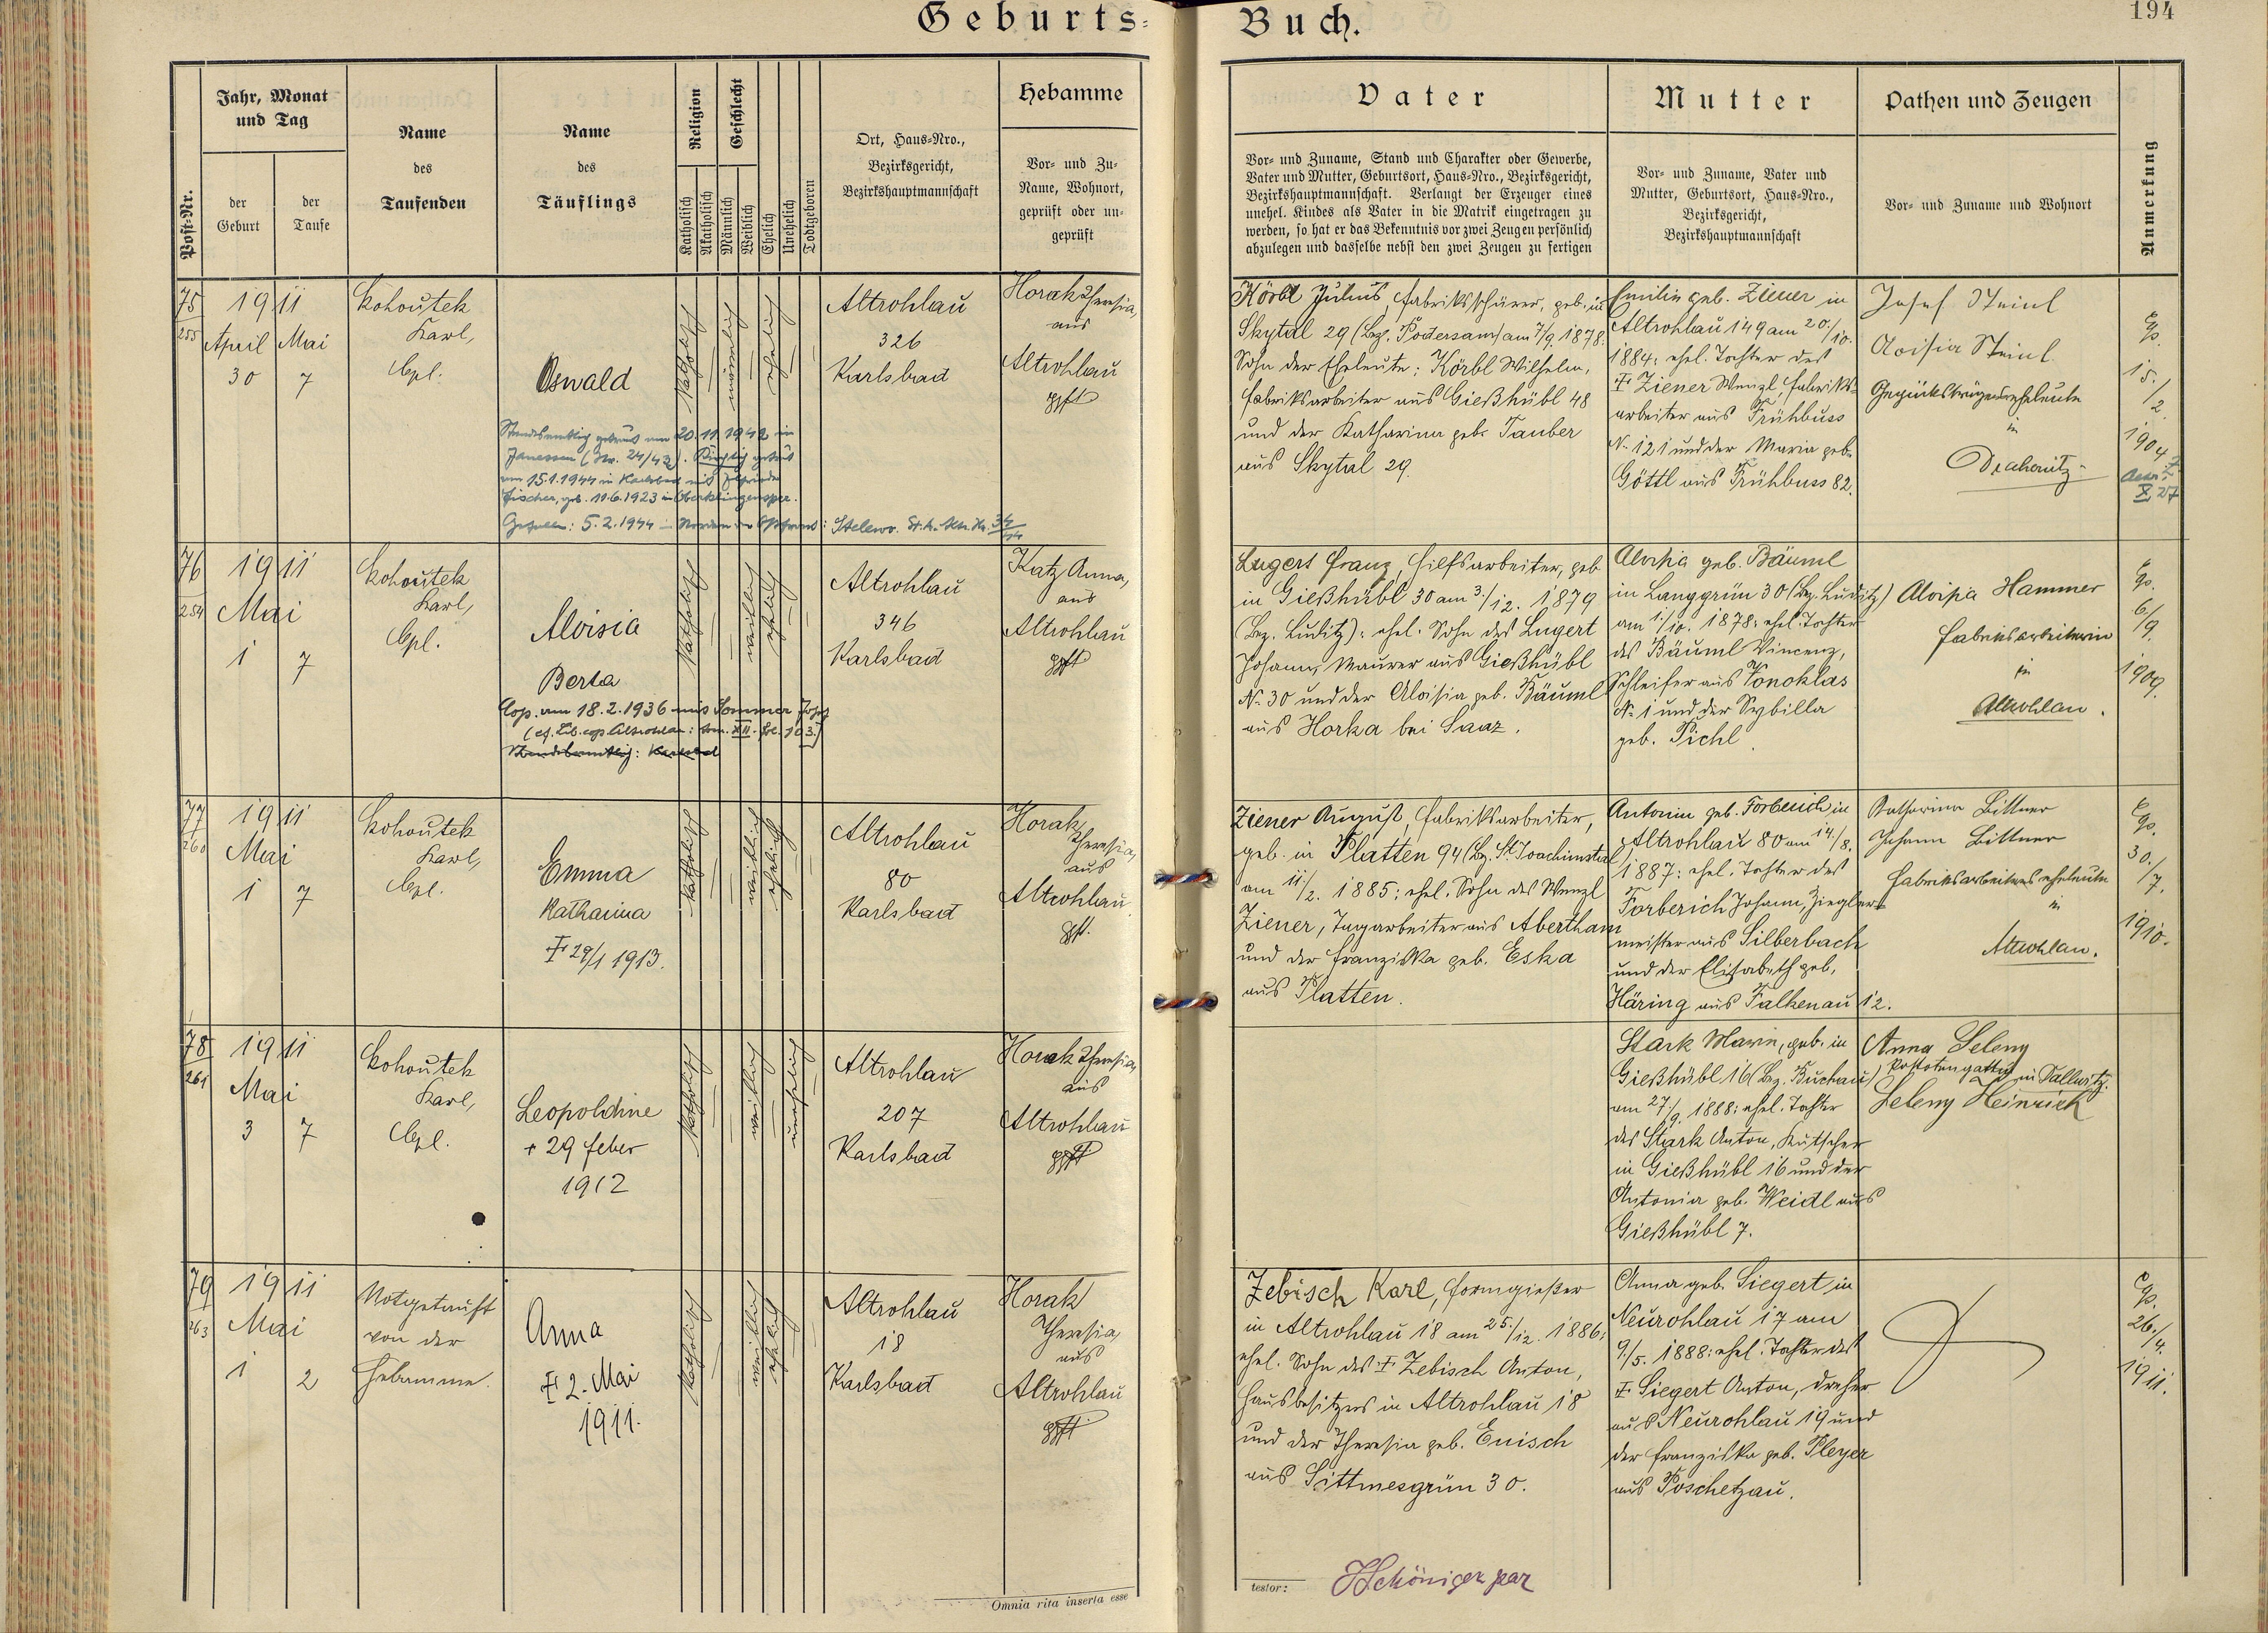 Geburts-Buch.
194
Post-Nr.
Jahr, Monat
und Tag
der
Geburt
der
Taufe
Name
des
Taufenden
Name
des
Täuflings
Religion
Katholisch
Akatholisch
Geschlecht
Männlich
Weiblich
Ehelich
Unehelich
Todtgeboren
Ort, Haus-Nro.,
Bezirksgericht,
Bezirkshauptmannschaft
Hebamme
Vor- und Zu-
Name, Wohnort,
geprüft oder un-
geprüft
Vater
Vor- und Zuname, Stand und Charakter oder Gewerbe,
Vater und Mutter, Geburtsort, Haus-Nro., Bezirksgericht,
Bezirkshauptmannschaft. Verlangt der Erzeuger eines
unehel. Kindes als Vater in die Matrik eingetragen zu
werden, so hat er das Bekenntnis vor zwei Zeugen persönlich
abzulegen und dasselbe nebst den zwei Zeugen zu fertigen
Mutter
Vor- und Zuname, Vater und
Mutter, Geburtsort, Haus-Nro.,
Bezirksgericht,
Bezirkshauptmannschaft
Pathen und Zeugen
Vor- und Zuname und Wohnort
Anmerkung
75
255
1911
April Mai
30 7
Kohoutek
Karl,
Cpl.
Oswald
Standesamtlich getraut am 20.11.1942 in
Janessen (Nr. 24/42). Kirchlich getraut
am 15.1.1944 in Karlsbad mit
Fischer, geb. 11.6.1923 in
Gefallen: 5.2.1944
katholisch
männlich
ehelich
Altrohlau
326
Karlsbad
Horak Theresia,
aus
Altrohlau
gpft
Körbl Julius, Fabriksschürer, geb. in
Skytal 29 (Bez. Podersam) am 7/9. 1878.
Sohn der Eheleute: Körbl Wilhelm,
Fabriksarbeiter aus Gießhübl 48
und der Katharina geb. Tauber
aus Skytal 29.
Emilie geb. Ziener in
Altrohlau 149 am 20./10.
1884: ehel. Tochter des
† Ziener Wenzl, Fabriks-
arbeiter aus Frühbuss
N. 121 und der Maria geb.
Göttl aus Frühbuss 82.
Josef Steinl
Aloisia Steinl
Gepäcksträgerseheleute
in
Drahowitz
Cp.
15./2.
1904
76
254
1911
Mai
1 7
Kohoutek
Karl,
Cpl.
Aloisia
Berta
Cop. am 18.2.1936 mit Sommer Josef
(cf. Lib. cop. Altrohlau: tom. XII. fol. 103.)
Standesamtlich: Karlsbad
katholisch
weiblich
ehelich
Altrohlau
346
Karlsbad
Katz Anna,
aus
Altrohlau
gpft
Lugert Franz, Hilfsarbeiter, geb.
in Gießhübl 30 am 3./12. 1879
(Bez. Luditz): ehel. Sohn des Lugert
Johann, Maurer aus Gießhübl
N. 30 und der Aloisia geb. Bäuml
aus Horka bei Saaz.
Aloisia geb. Bäuml
in Langgrün 30 (Bz. Luditz)
am 1./10. 1878: ehel. Tochter
des Bäuml Vincenz,
Schleifer aus Vonoklas
N. 1 und der Sybilla
geb. Pichl.
Aloisia Hammer
Fabriksarbeiterin
in
Altrohlau.
Cp.
6/9.
1909.
77
260
1911
Mai
1 7
Kohoutek
Karl,
Cpl.
Emma
Katharina
† 29/1 1913.
katholisch
weiblich
ehelich
Altrohlau
80
Karlsbad
Horak
Theresia,
aus
Altrohlau
gpft.
Ziener August, Fabriksarbeiter,
geb. in Platten 94 (Bz. St. Joachimstal)
am 11/2. 1885: ehel. Sohn des Wenzl
Ziener, Tagarbeiter aus Abertham
und der Franziska geb. Eska
aus Platten.
Antonie geb. Forberich in
Altrohlau 80 am 14./8.
1887: ehel. Tochter des
Forberich Johann, Ziegler-
meister aus Silberbach
und der Elisabeth geb.
Häring aus Falkenau 12.
Katharina Bittner
Johann Bittner
Fabriksarbeiterseheleute
in
Altrohlau.
Cp.
30./7.
1910.
78
261
1911
Mai
3 7
Kohoutek
Karl,
Cpl.
Leopoldine
+ 29 Feber
1912
katholisch
weiblich
unehelich
Altrohlau
207
Karlsbad
Horak Theresia,
aus
Altrohlau
gpft
Stark Marie, geb. in
Gießhübl 16 (Bz. Buchau)
am 27/9. 1888: ehel. Tochter
des Stark Anton, Kutscher
in Gießhübl 16 und der
Antonia geb. Weidl aus
Gießhübl 7.
Anna Seleny
in Dallwitz.
Seleny Heinrich
79
263
1911
Mai
1 2
Notgetauft
von der
Hebamme.
Anna
† 2. Mai
1911.
katholisch
weiblich
ehelich
Altrohlau
18
Karlsbad
Horak
Theresia,
aus
Altrohlau
gpft
Zebisch Karl, Formgießer
in Altrohlau 18 am 25./12. 1886:
ehel. Sohn des † Zebisch Anton,
Hausbesitzers in Altrohlau 18
und der Theresia geb. Enisch
aus Sittmesgrün 30.
Anna geb. Siegert in
Neurohlau 17 am
9./5. 1888: ehel. Tochter des
† Siegert Anton, Dreher
aus Neurohlau 19 und
der Franziska geb. Pleyer
aus Poschetzau.
Cp.
26./4.
1911.
Omnia rita inserta esse
testor: